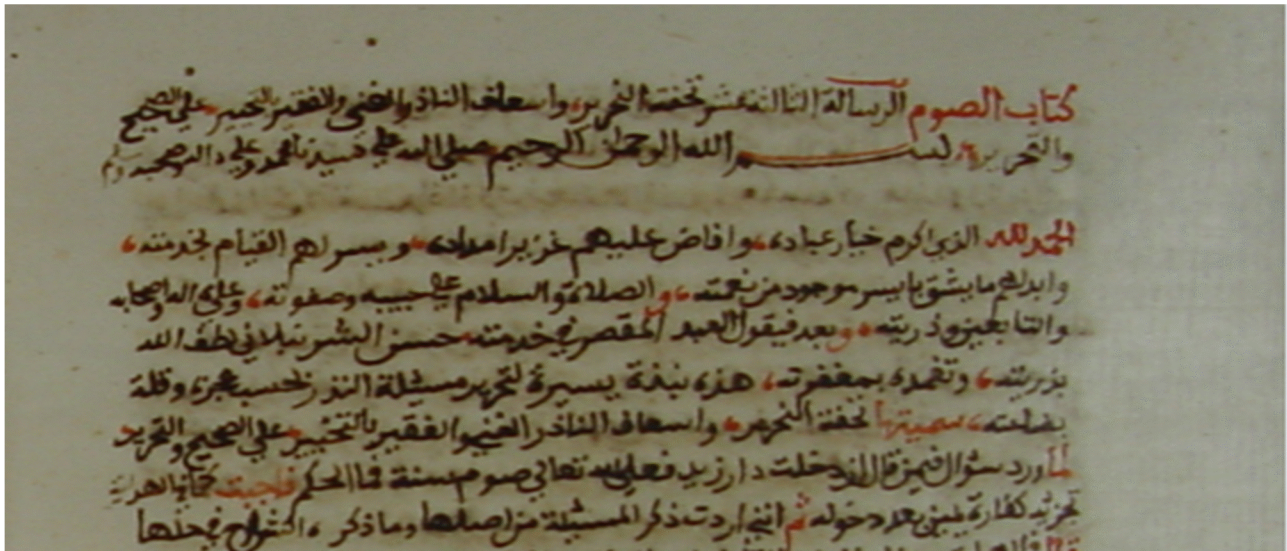 كتاب الصوم الرسالة الثالثة عشر تحفة النحرير، واسعاف الناذر الغني والفقير بالتخيير، على الصحيح
والتحرير، بسم الله الرحمن الرحيم صلى الله على سيدنا محمد وعلى اله وصحبه وسلم
الحمد لله الذي اكرم خيار عباده، وافاض عليهم غزير امداده، ويسر لهم القيام لخدمته،
وابدلهم ما يشق بايسر موجود من نعمته، والصلاة والسلام على حبيبه وصفوته، وعلى اله واصحابه
والتابعين وذريته، وبعد فيقول العبد المقصر في خدمته حسن الشرنبلالي لطف الله
بذريته، وتغمده بمغفرته، هذه نبذة يسيرة لتحرير مسئلة النذر بحسب عجزه وقلة
بضاعته، سميتها تحفة النحرير، واسعاف الناذر الغني والفقير بالتخيير، على الصحيح والتحرير
لما ورد سئوال فيمن قال ان دخلت دار زيد فعلى لله تعالى صوم سنة فما الحكم فاجبت
تجزيه كفارة يمين بعد دخوله ثم انني اردت ذكر المسئلة من اصلها وما ذكره الشراح في حلها